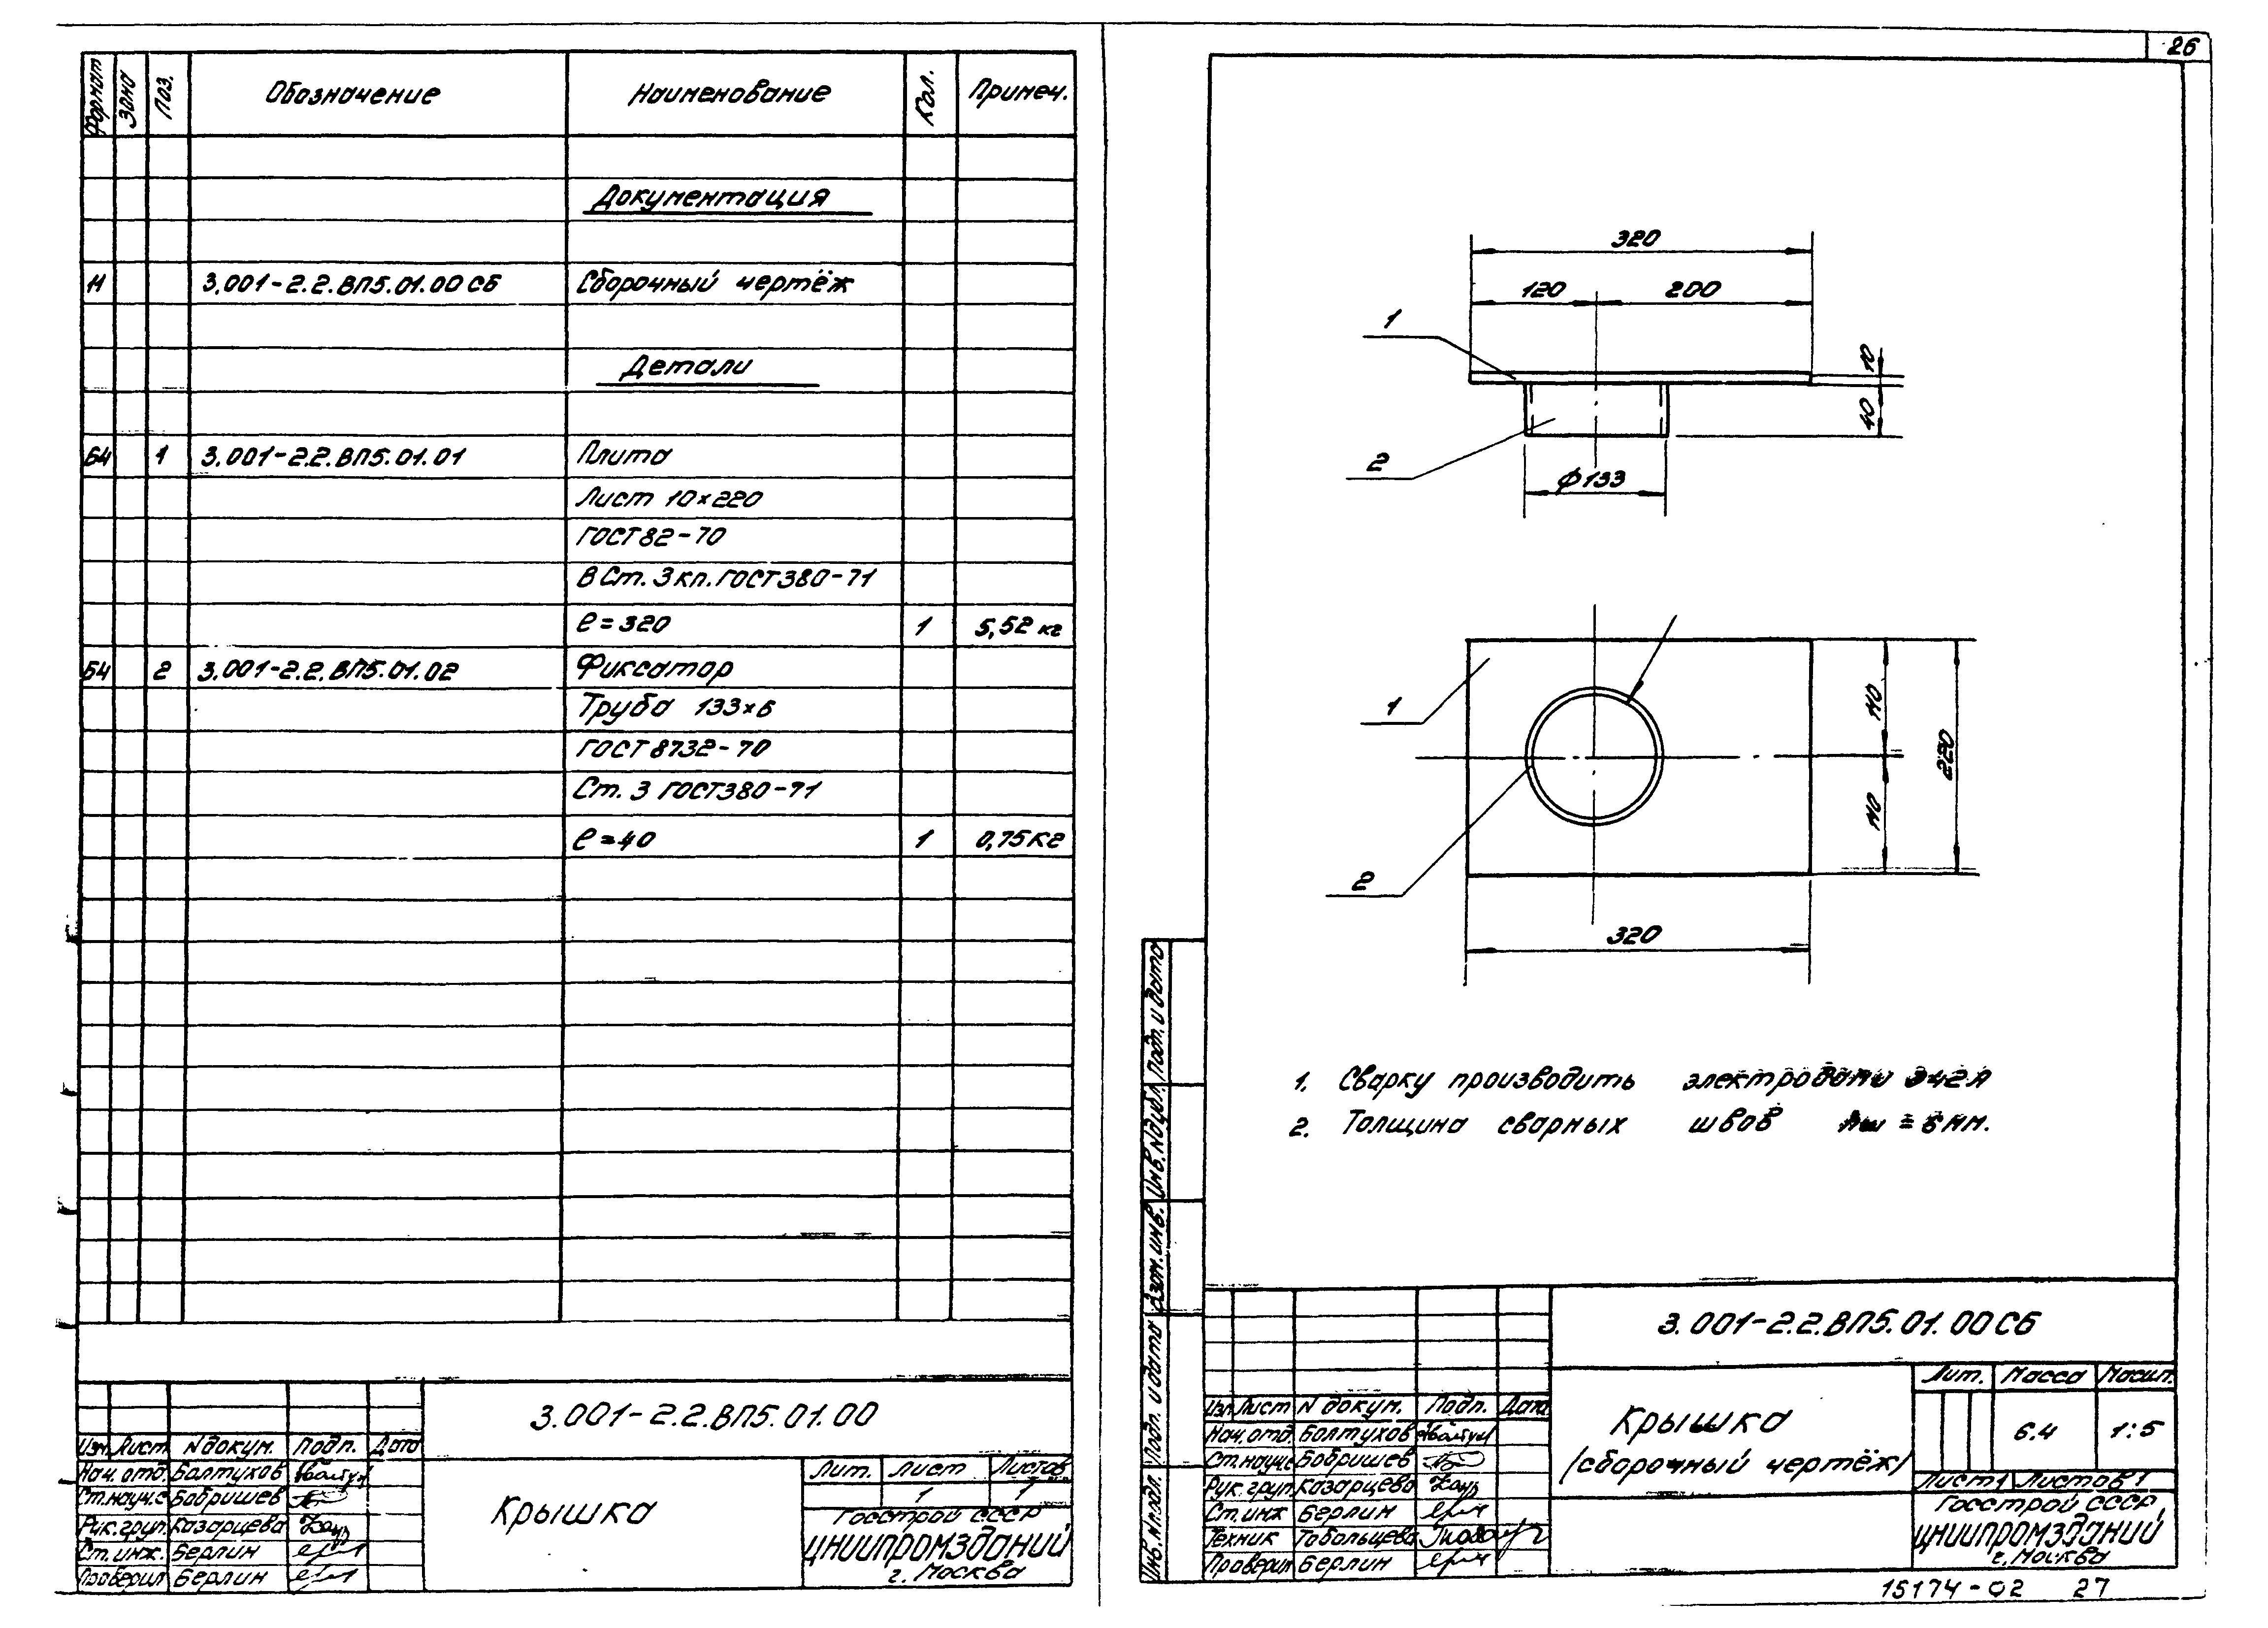 Формат Зона Поз. Обозначение Наименование Кол. Примеч.
Документация
11 3.001-2.2.ВП5.01.00 СБ Сборочный чертёж
Детали
Б4 1 3.001-2.2.ВП5.01.01 Плита
Лист 10×220
ГОСТ 82-70
В Ст. 3 кп. ГОСТ 380-71
ℓ=320 1 5,52 кг
Б4 2 3.001-2.2.ВП5.01.02 Фиксатор
Труба 133×6
ГОСТ 8732-70
Ст. 3 ГОСТ 380-71
ℓ=40 1 0,75 кг
3.001-2.2.ВП5.01.00
Изм. Лист N докум. Подп. Дата
Нач. отд. Болтухов
Ст. науч. с Бобришев
Рук. груп. Казарцева
Ст. инж. Берлин
Проверил Берлин
Крышка
Лит. Лист Листов
1 1
Госстрой СССР
ЦНИИПРОМЗДАНИЙ
г. Москва
26
320
120 200
1
10
40
2
ф133
1
110
220
110
2
320
1. Сварку производить электродами Э42А
2. Толщина сварных швов hш = 6 мм.
Подп. и дата
Инв. N дубл.
Взам. инв.
Подп. и дата
Инв. N подл.
3.001-2.2.ВП5.01.00 СБ
Изм. Лист N докум. Подп. Дата
Нач. отд. Болтухов
Ст. науч. с Бобришев
Рук. груп. Казарцева
Ст. инж Берлин
Техник Тобольцева
Проверил Берлин
Крышка
(сборочный чертёж)
Лит. Масса Масшт.
6.4 1:5
Лист 1 Листов 1
Госстрой СССР
ЦНИИПРОМЗДАНИЙ
г. Москва
15174-02 27